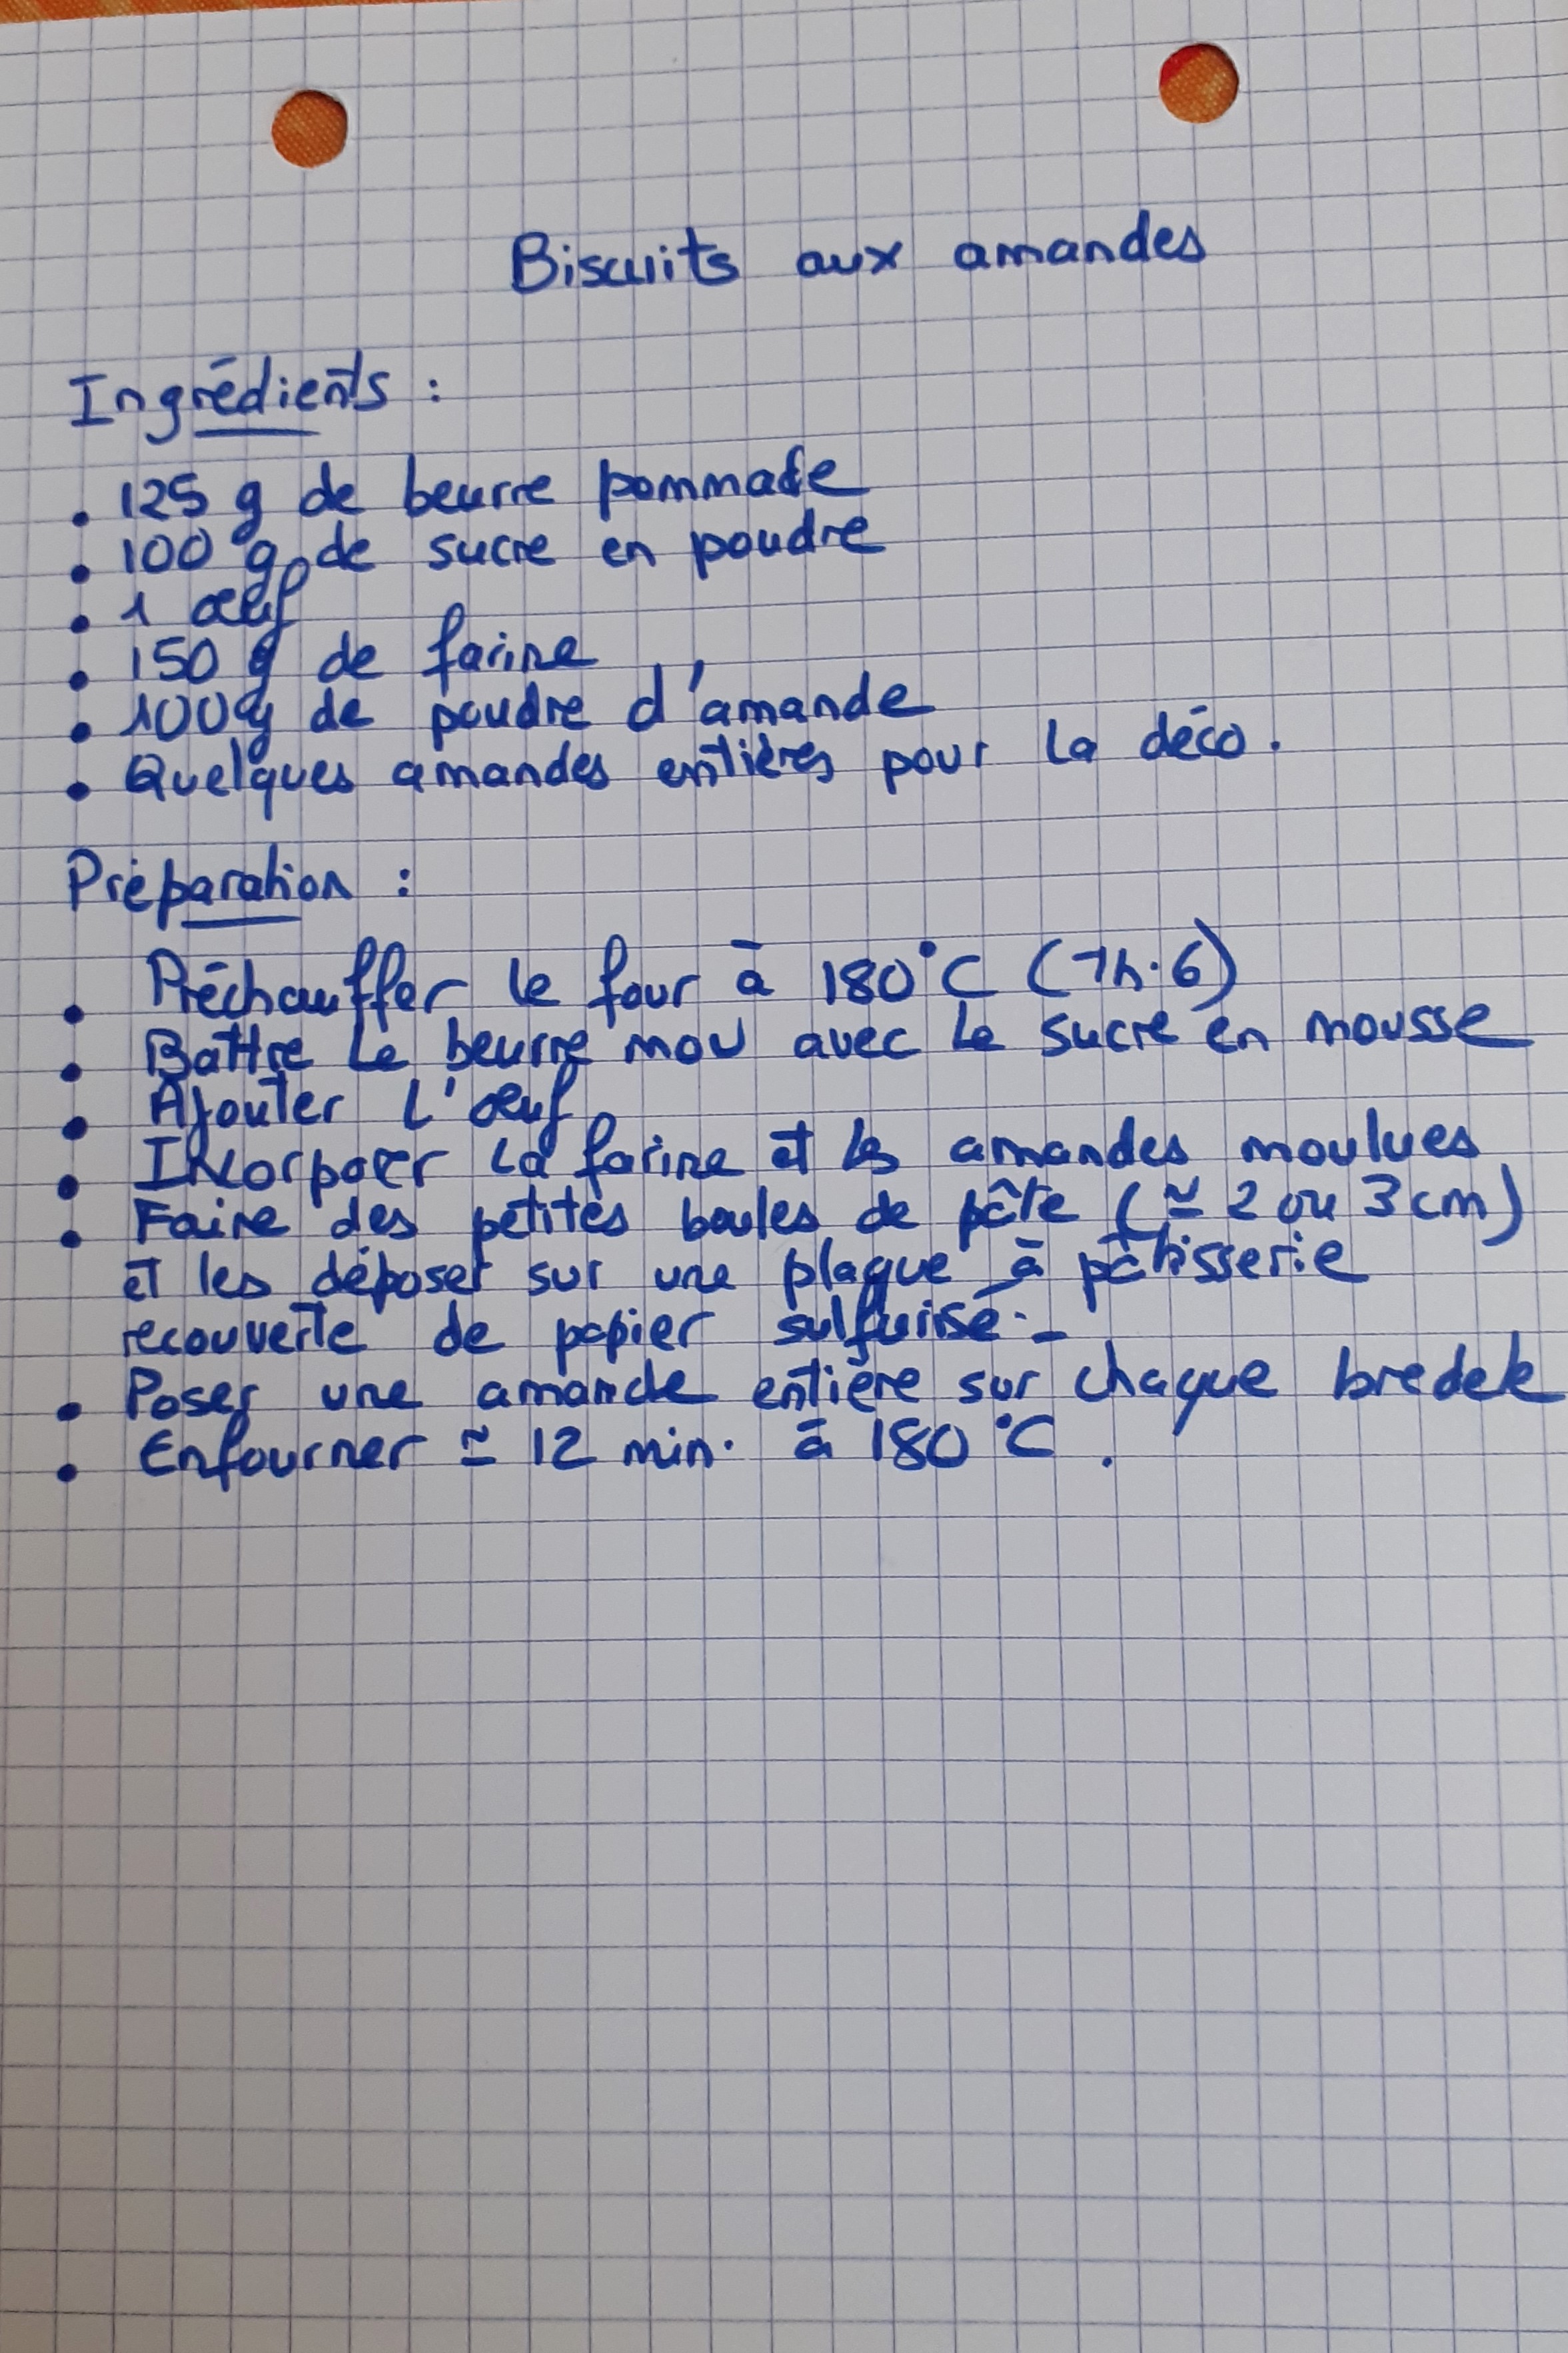 Biscuits aux amandes
Ingrédients :
• 125 g de beurre pommade
• 100 g de sucre en poudre
• 1 œuf
• 150 g de farine
• 100g de poudre d'amande
• Quelques amandes entières pour la déco.
Préparation :
• Préchauffer le four à 180°C (Th.6)
• Battre le beurre mou avec le sucre en mousse
• Ajouter l'œuf
• Incorporer la farine et les amandes moulues
• Faire des petites boules de pâte (≃ 2 ou 3 cm)
et les déposer sur une plaque à pâtisserie
recouverte de papier sulfurisé.
• Poser une amande entière sur chaque bredele
• Enfourner ≃ 12 min. à 180°C.